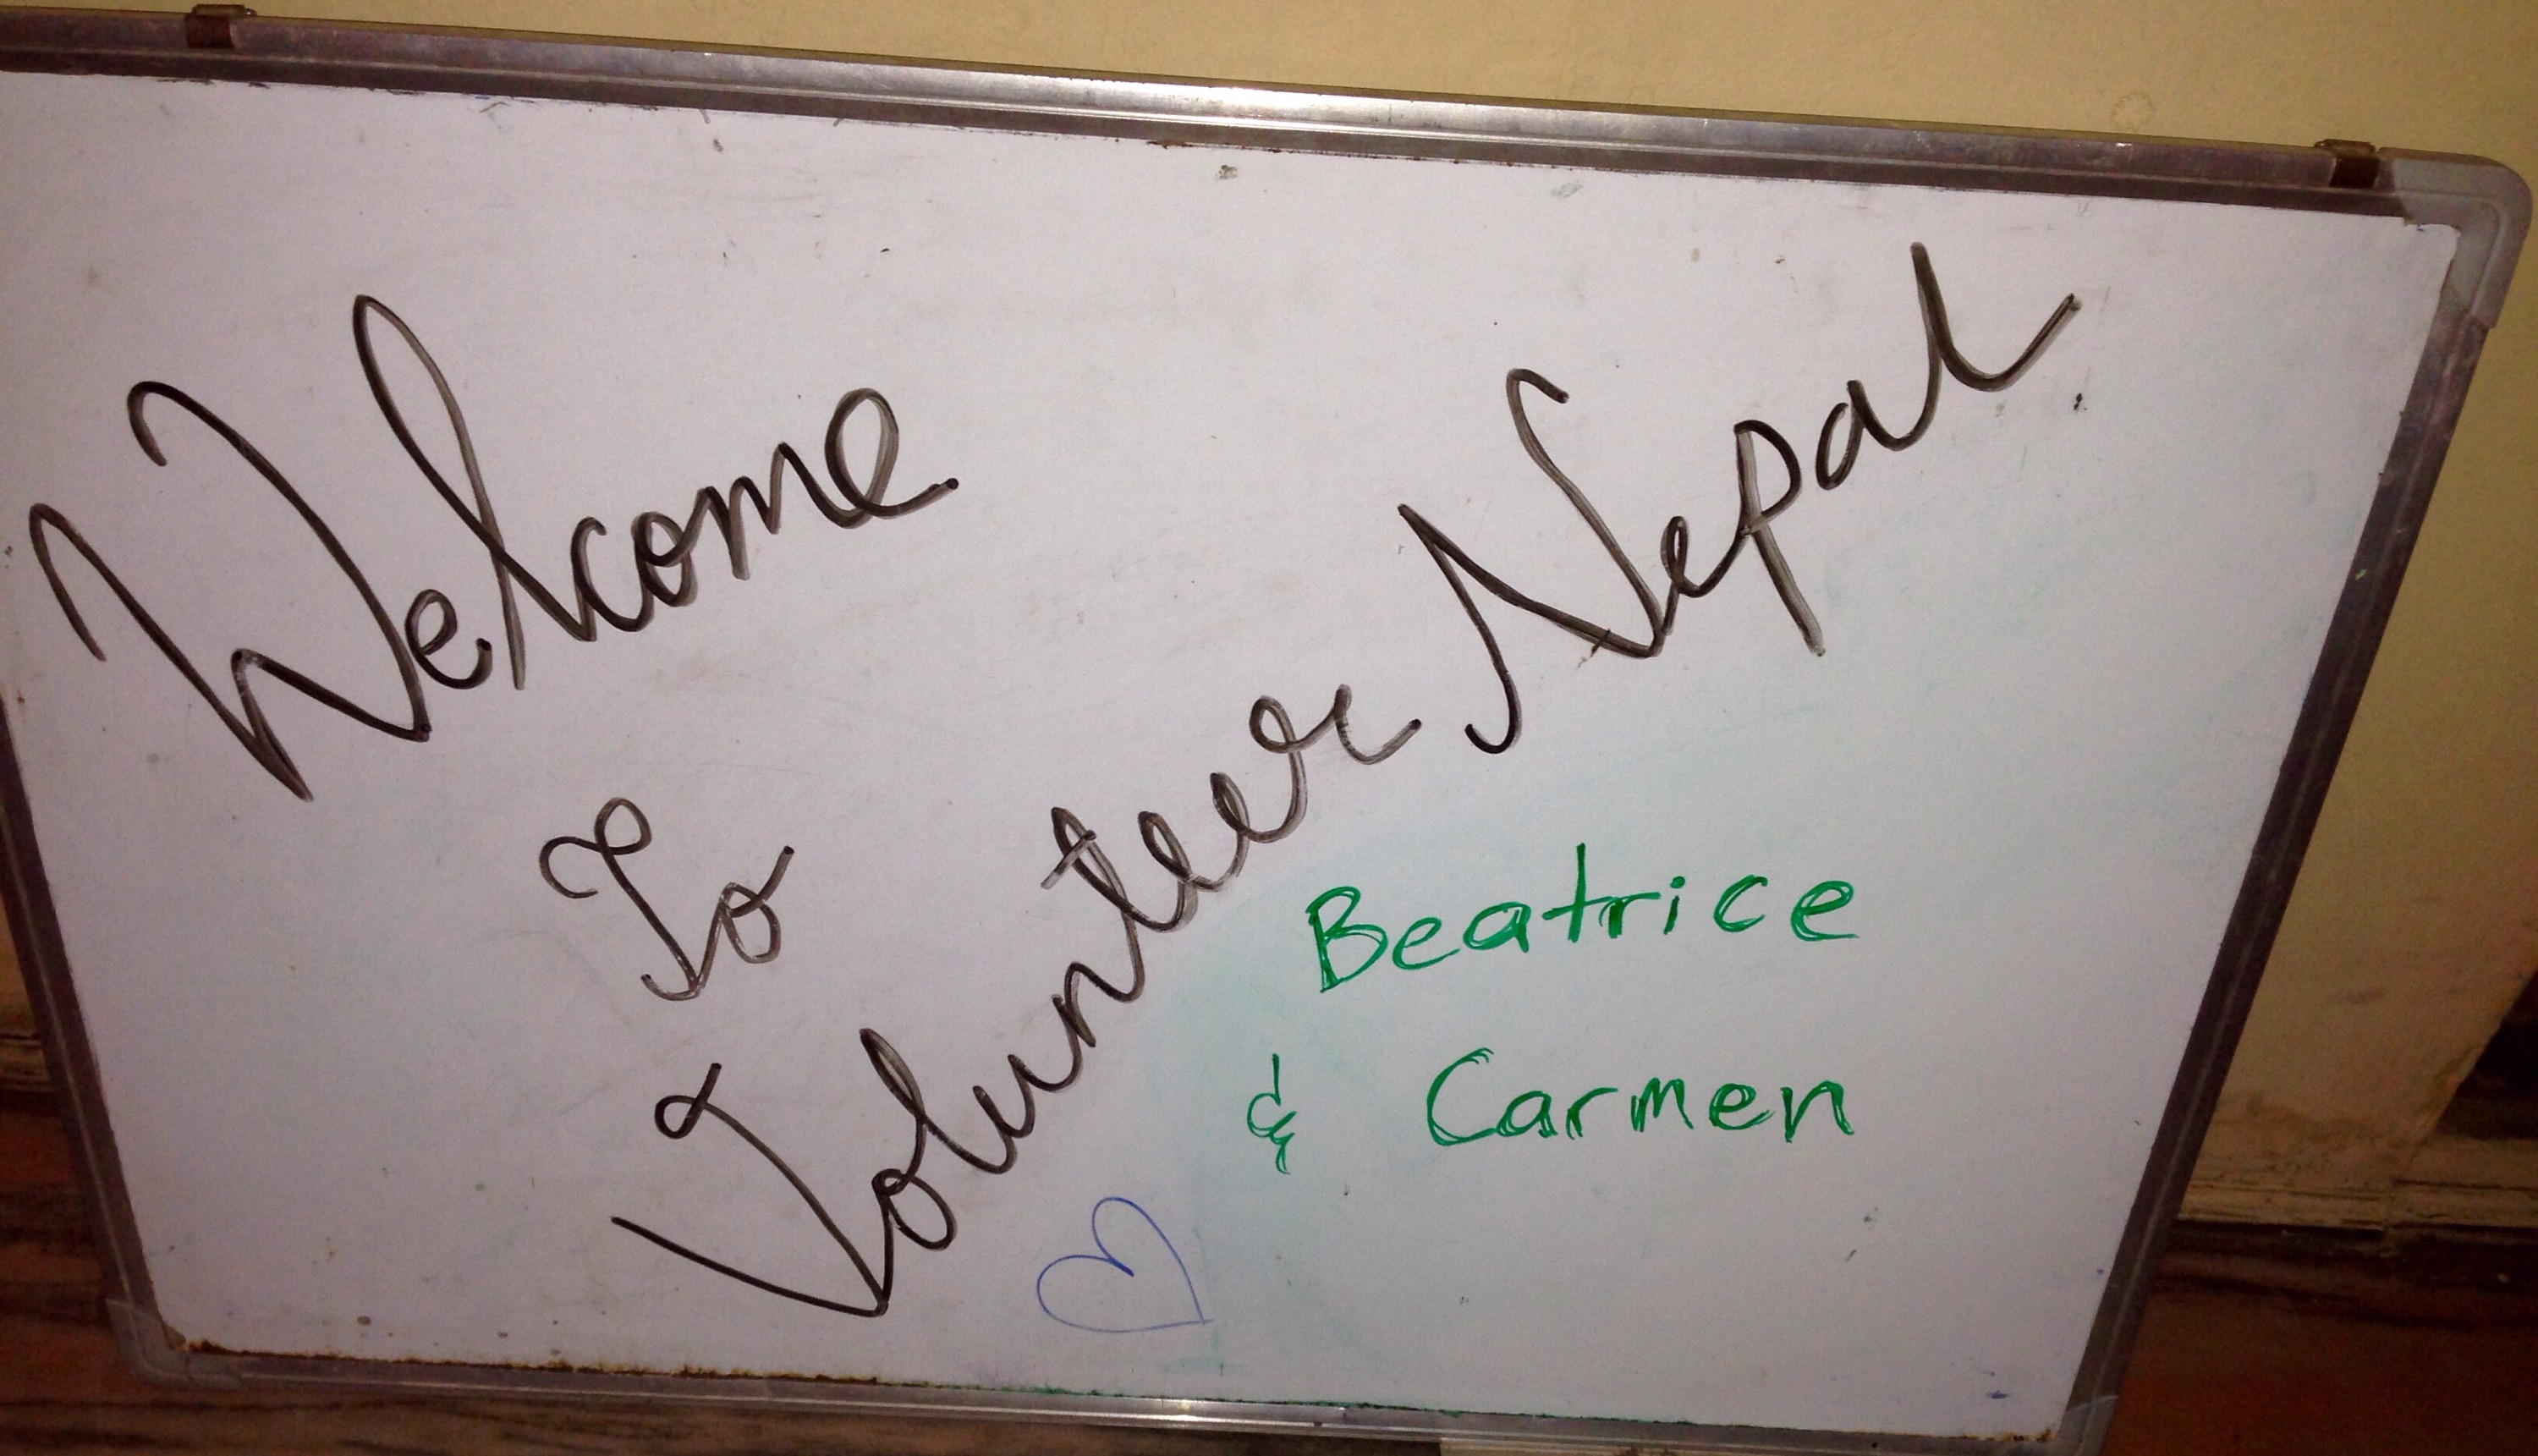 Welcome
To
Volunteer Nepal
Beatrice
& Carmen